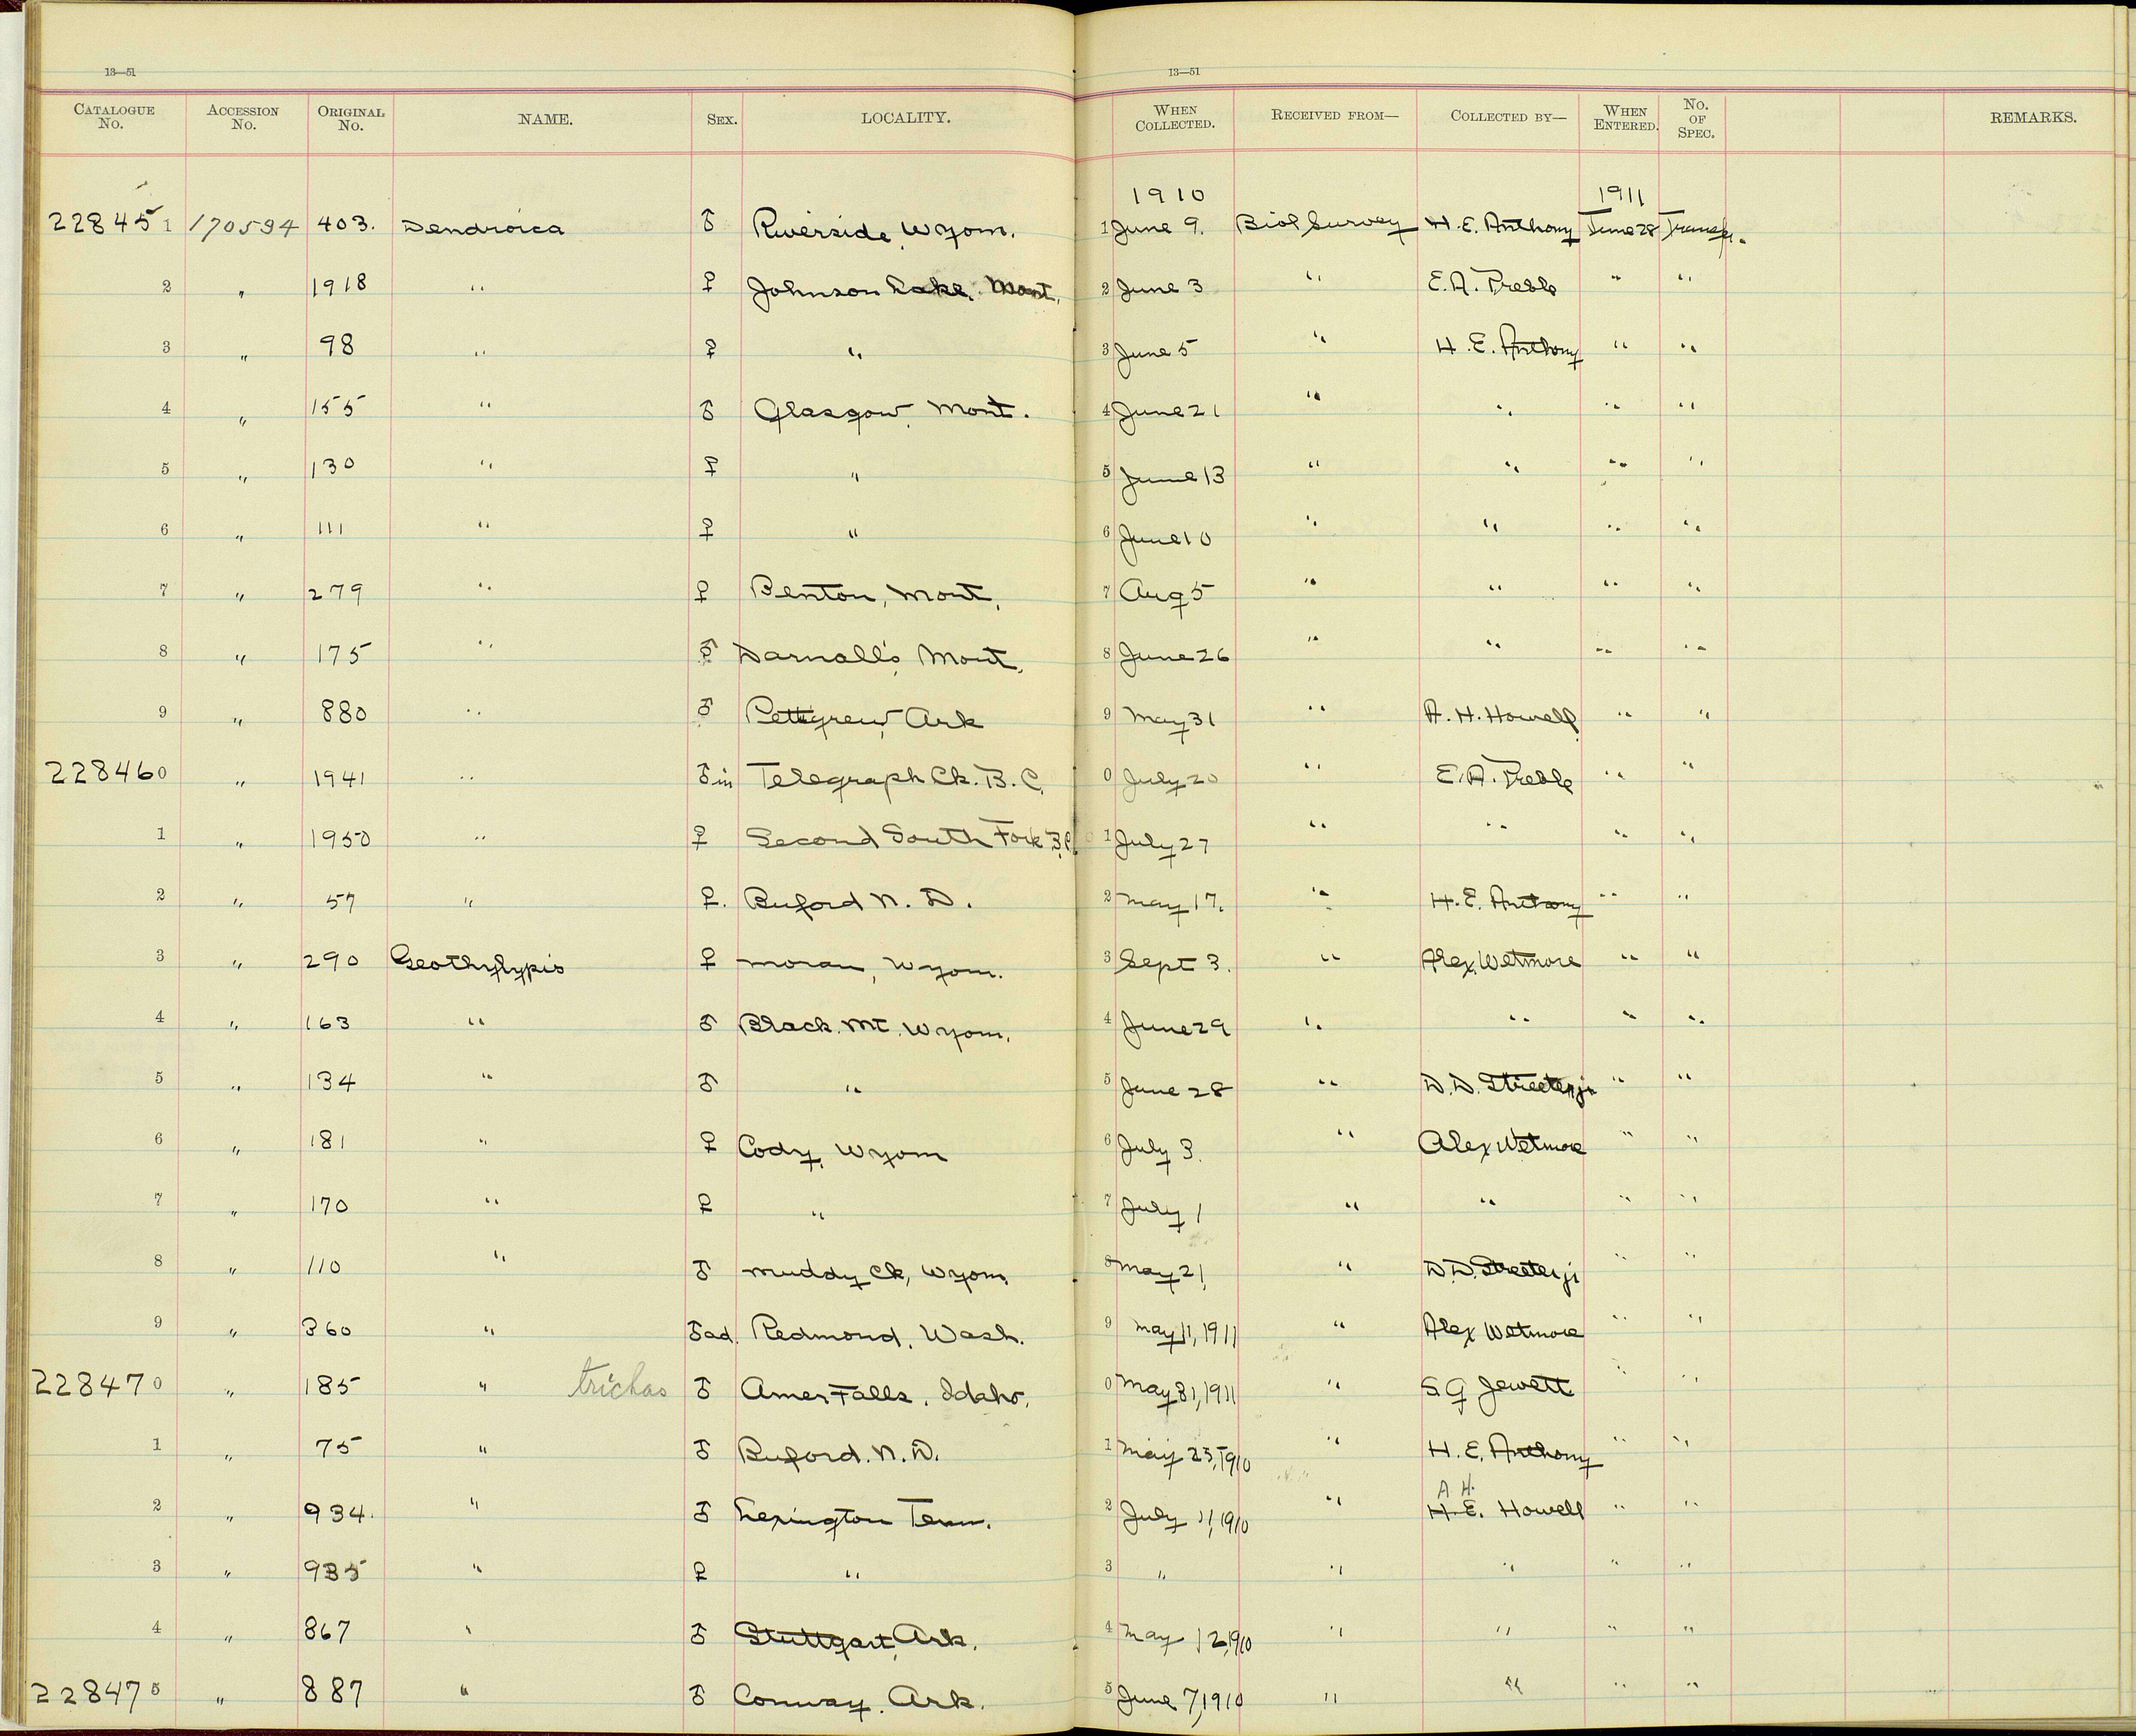 13—51 13—51
CATALOGUE No. ACCESSION No. ORIGINAL No. NAME. SEX. LOCALITY. WHEN COLLECTED. RECEIVED FROM— COLLECTED BY— WHEN ENTERED. No. OF SPEC. REMARKS.
1910 1911
228451 170594 403. Dendroica ♂ Riverside, Wyom. 1 June 9. Biol Survey H. E. Anthony June 28 Transfr.
2 " 1918 " ♀ Johnson Lake, Mont. 2 June 3 " E. A. Preble " "
3 " 98 " ♀ " 3 June 5 " H. E. Anthony " "
4 " 155 " ♂ Glasgow, Mont. 4 June 21 " " " "
5 " 130 " ♀ " 5 June 13 " " " "
6 " 111 " ♀ " 6 June 10 " " " "
7 " 279 " ♀ Benton, Mont. 7 Aug 5 " " " "
8 " 175 " Darnall's, Mont. 8 June 26 " " " "
9 " 880 " ♂ Pettigrew, Ark 9 May 31 " A. H. Howell " "
228460 " 1941 " ♂ in Telegraph Ck. B. C. 0 July 20 " E. A. Preble " "
1 " 1950 " ♀ Second South Fork B.C. 1 July 27 " " " "
2 " 57 " ♀. Buford N. D. 2 May 17. " H. E. Antony " "
3 " 290 Geothylypis ♀ Moran, Wyom. 3 Sept 3. " Alex Wetmore " "
4 " 163 " ♂ Black Mt. Wyom. 4 June 29 " " " "
5 " 134 " ♂ " 5 June 28 " D. D. Streeter jr " "
6 " 181 " ♀ Cody, Wyom 6 July 3. " Alex Wetmore " "
7 " 170 " ♀ " 7 July 1 " " " "
8 " 110 " ♂ Muddy Ck, Wyom. 8 May 21, " D. D. Streeter jr " "
9 " 360 " ♂ ad. Redmond, Wash. 9 May 11, 1911 " Alex Wetmore " "
228470 " 185 " trichas ♂ Amer Falls, Idaho. 0 May 31, 1911 " S G Jewett " "
1 " 75 " ♂ Buford. N. D. 1 May 23, 1910 " H. E. Anthony " "
A H.
2 " 934. " ♂ Lexington Tenn. 2 July 11, 1910 " H. E. Howell " "
3 " 935 " ♀ " 3 " " " " "
4 " 867 " ♂ Stuttgart, Ark. 4 May 12, 1910 " " " "
228475 " 887 " ♂ Conway. Ark. 5 June 7, 1910 " " " "